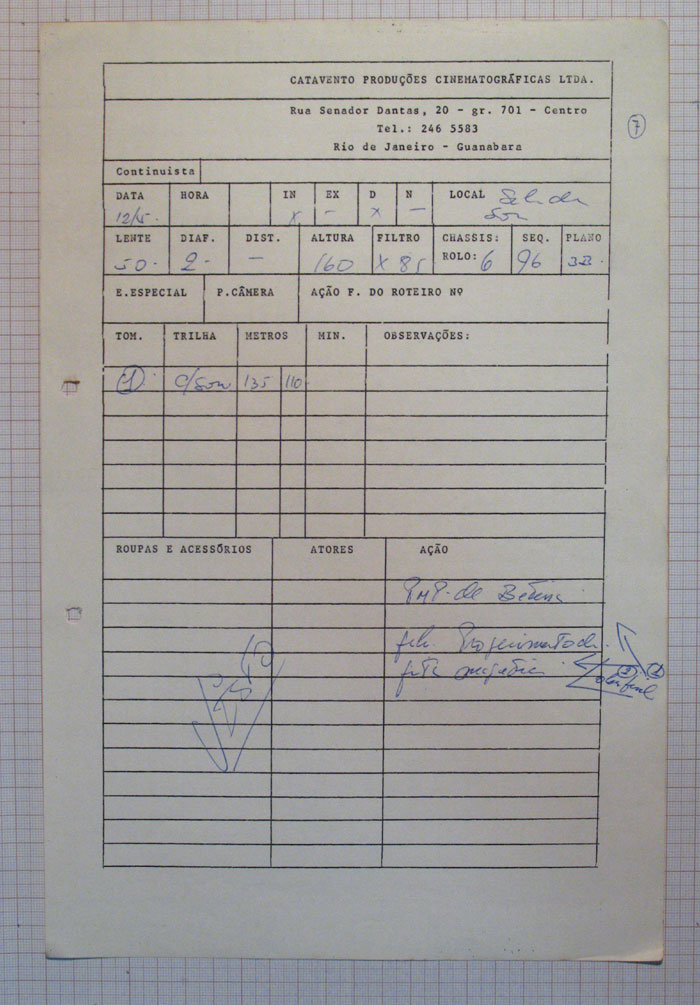 CATAVENTO PRODUÇÕES CINEMATOGRÁFICAS LTDA.
Rua Senador Dantas, 20 - gr. 701 - Centro
7
Tel.: 246 5583
Rio de Janeiro - Guanabara
Continuista
DATA HORA IN EX D N LOCAL
12/5. X - X - Som
LENTE DIAF. DIST. ALTURA FILTRO CHASSIS: SEQ. PLANO
50. 2. - 160 X 85 ROLO: 6 96 3B.
E.ESPECIAL P.CÂMERA AÇÃO F. DO ROTEIRO Nº
TOM. TRILHA METROS MIN. OBSERVAÇÕES:
1 c/som 135 110.
ROUPAS E ACESSÓRIOS ATORES AÇÃO
de
fita